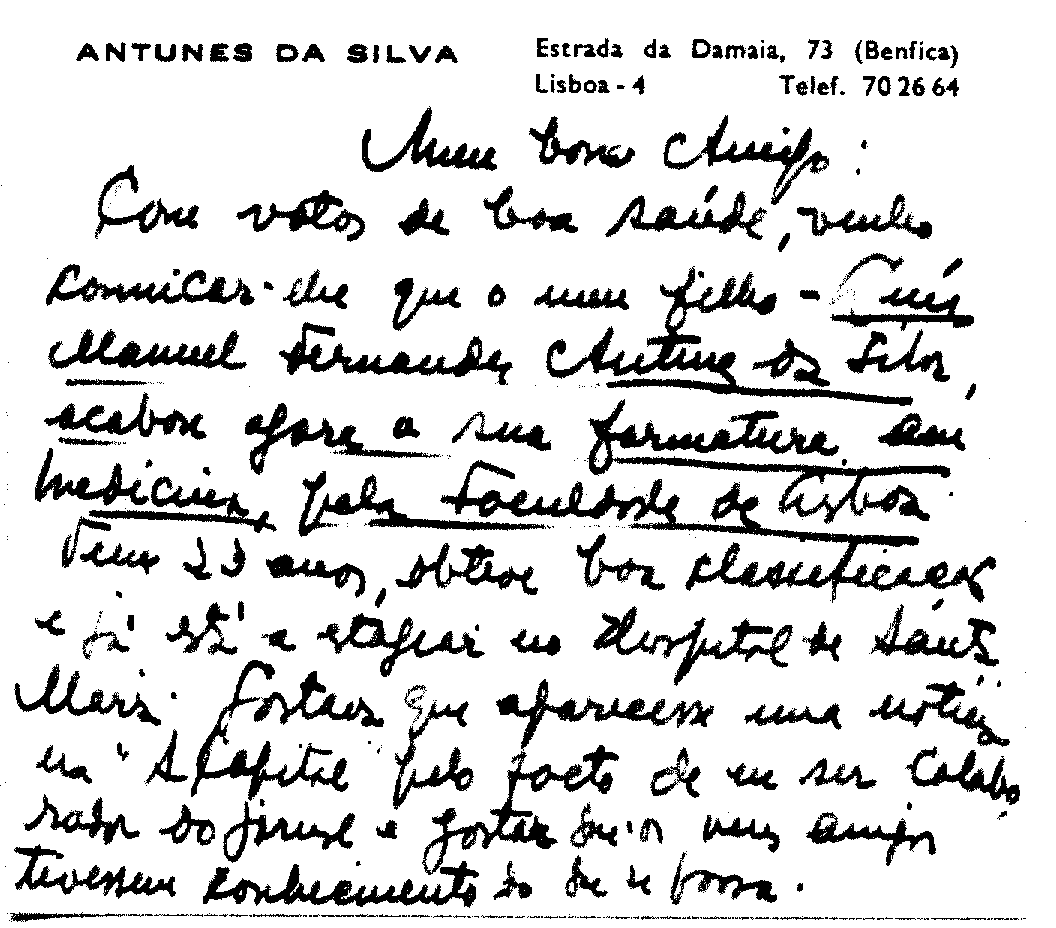 ANTUNES DA SILVA
Estrada da Damaia, 73 (Benfica)
Lisboa - 4 Telef. 70 26 64
Meu bom Amigo:
Com votos de boa saúde, venho
comnicar-lhe que o meu filho - Luís
Manuel Fernandes Antunes da Silva,
acabou agora a sua formatura em
Medicina, pela Faculdade de Lisboa.
Tem 23 anos, obteve boa classificação
e já está a estagiar no Hospital de Santa
Maria. Gostava que aparecesse uma notícia
na "A Capital" pelo facto de eu ser colabo
rador do jornal e gostar que os meus amigos
tivessem conhecimento do que se passa.